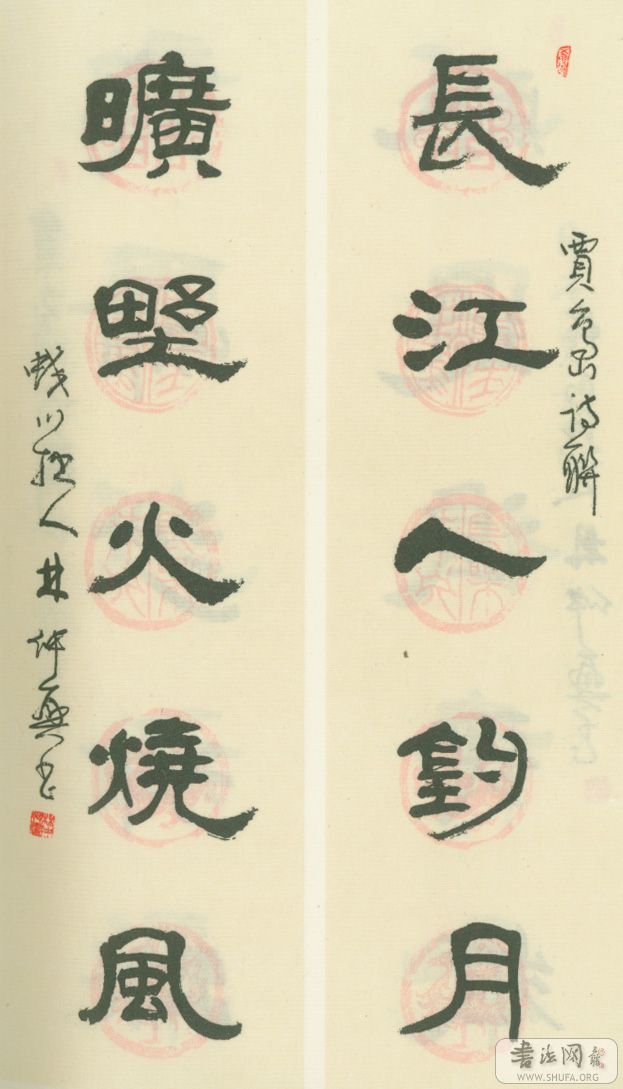 賈島詩聯
長江人釣月
曠野火燒風
林仲興书
書法网
WWW.SHUFA.ORG